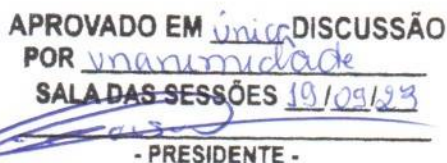 APROVADO EM única DISCUSSÃO
POR unanimidade
SALA DAS SESSÕES 19/09/23
- PRESIDENTE -